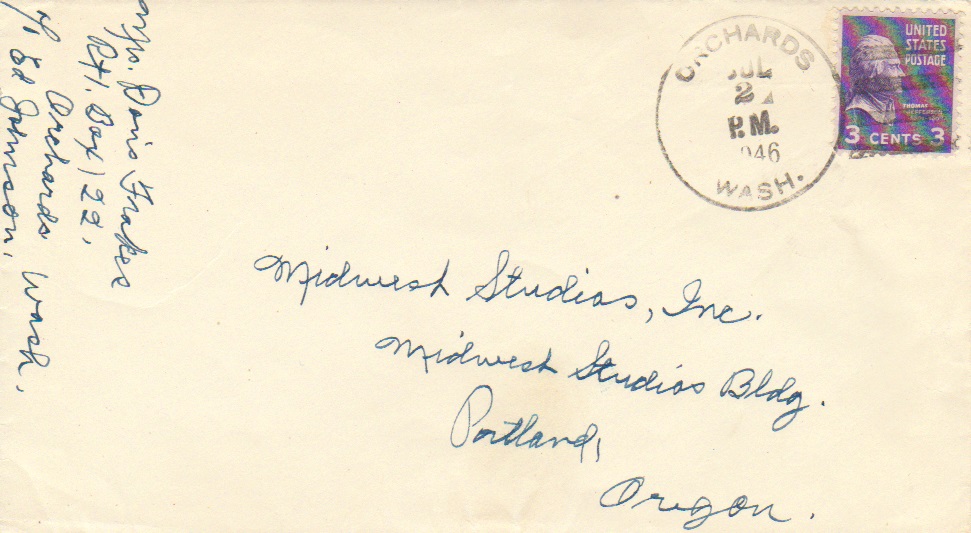 Mrs. Doris Frakes
Rt 1. Box 122,
Orchards Wash.
% Ed Johnson,
ORCHARDS
JUL
2
P.M.
1946
WASH.
UNITED
STATES
POSTAGE
THOMAS
JEFFERSON
3 CENTS 3
Midwest Studios, Inc.
Midwest Studios Bldg.
Portland,
Oregon.